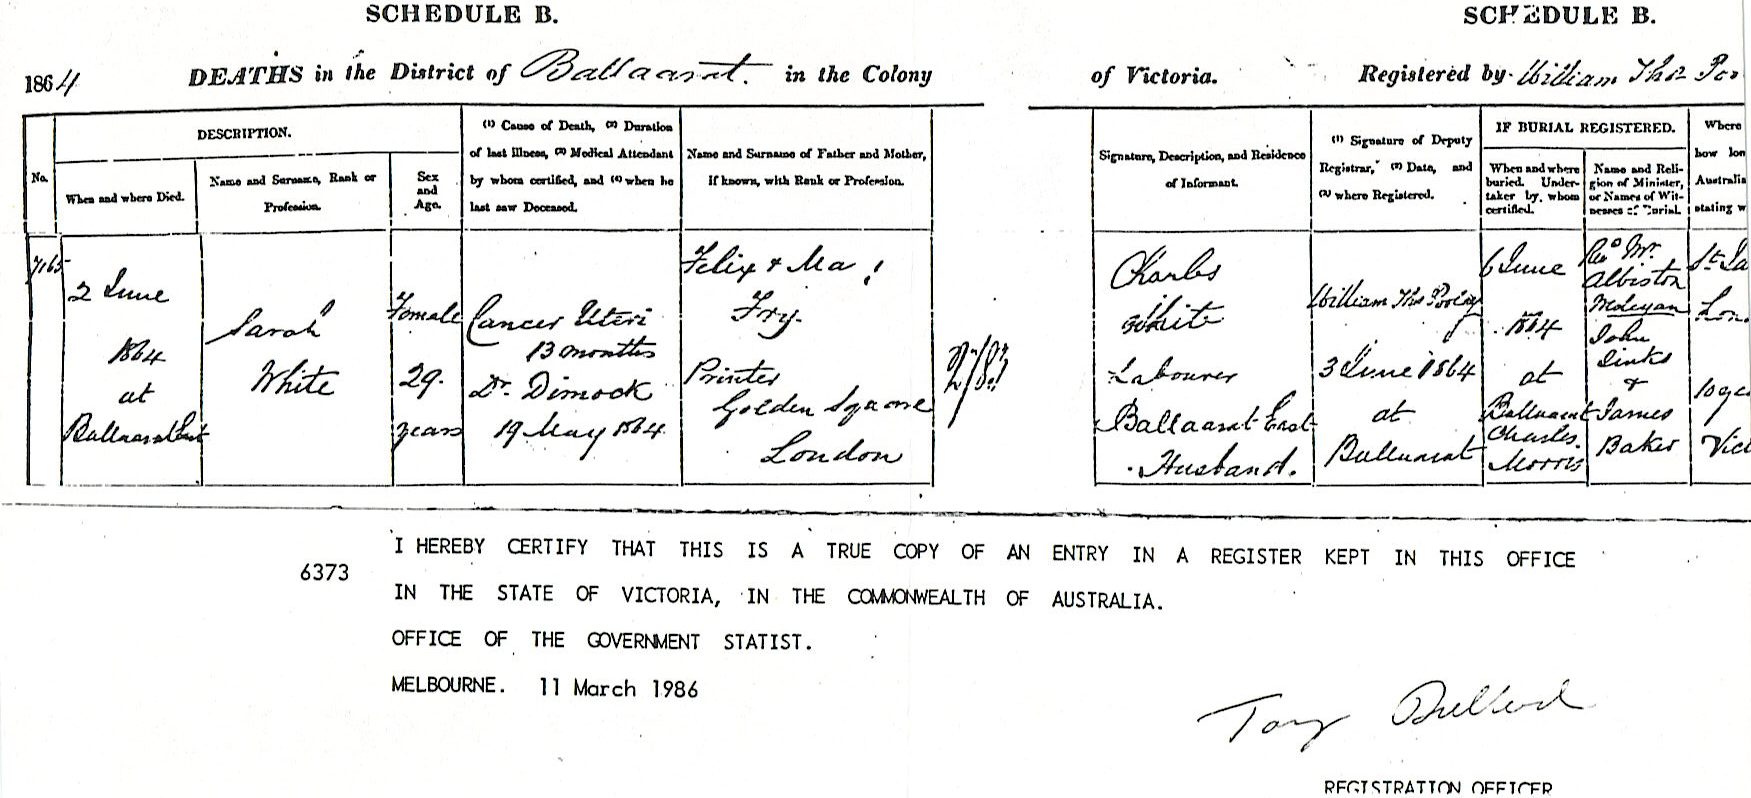 SCHEDULE B.
SCHEDULE B.
1864 DEATHS in the District of Ballaarat. in the Colony
of Victoria. Registered by William Thos
DESCRIPTION.
No.
When and where Died.
Name and Surname, Rank or
Profession.
Sex
and
Age.
(1) Cause of Death, (2) Duration
of last Illness, (3) Medical Attendant
by whom certified, and (4) when he
last saw Deceased.
Name and Surname of Father and Mother,
if known, with Rank or Profession.
Signature, Description, and Residence
of Informant.
(1) Signature of Deputy
Registrar, (2) Date, and
(3) where Registered.
IF BURIAL REGISTERED.
When and where
buried. Under-
taker by whom
certified.
Name and Reli-
gion of Minister,
or Names of Wit-
nesses of Burial.
Where
how lon
Australia
stating w
7165
2 June
1864
at
Ballaarat East
Sarah
White
Female
29.
years
Cancer Uteri
13 months
Dr. Dimock
19 May 1864
Felix & Ma
Fry.
Printer
Golden Square
London
Charles
White
Labourer
Ballaarat East
Husband.
William Thos Pooley
3 June 1864
at
Ballaarat
6 June
1864
at
Ballaarat
Charles
Morris
Revd Mr.
Albiston
Wesleyan
John
Jinks
&
James
Baker
Lon
10 yea
Vict
I HEREBY CERTIFY THAT THIS IS A TRUE COPY OF AN ENTRY IN A REGISTER KEPT IN THIS OFFICE
6373
IN THE STATE OF VICTORIA, IN THE COMMONWEALTH OF AUSTRALIA.
OFFICE OF THE GOVERNMENT STATIST.
MELBOURNE. 11 March 1986
Tony
REGISTRATION OFFICER